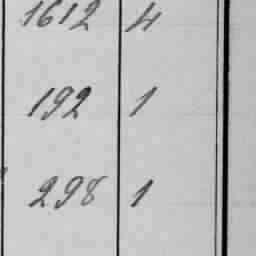 1612 4
192 1
298 1